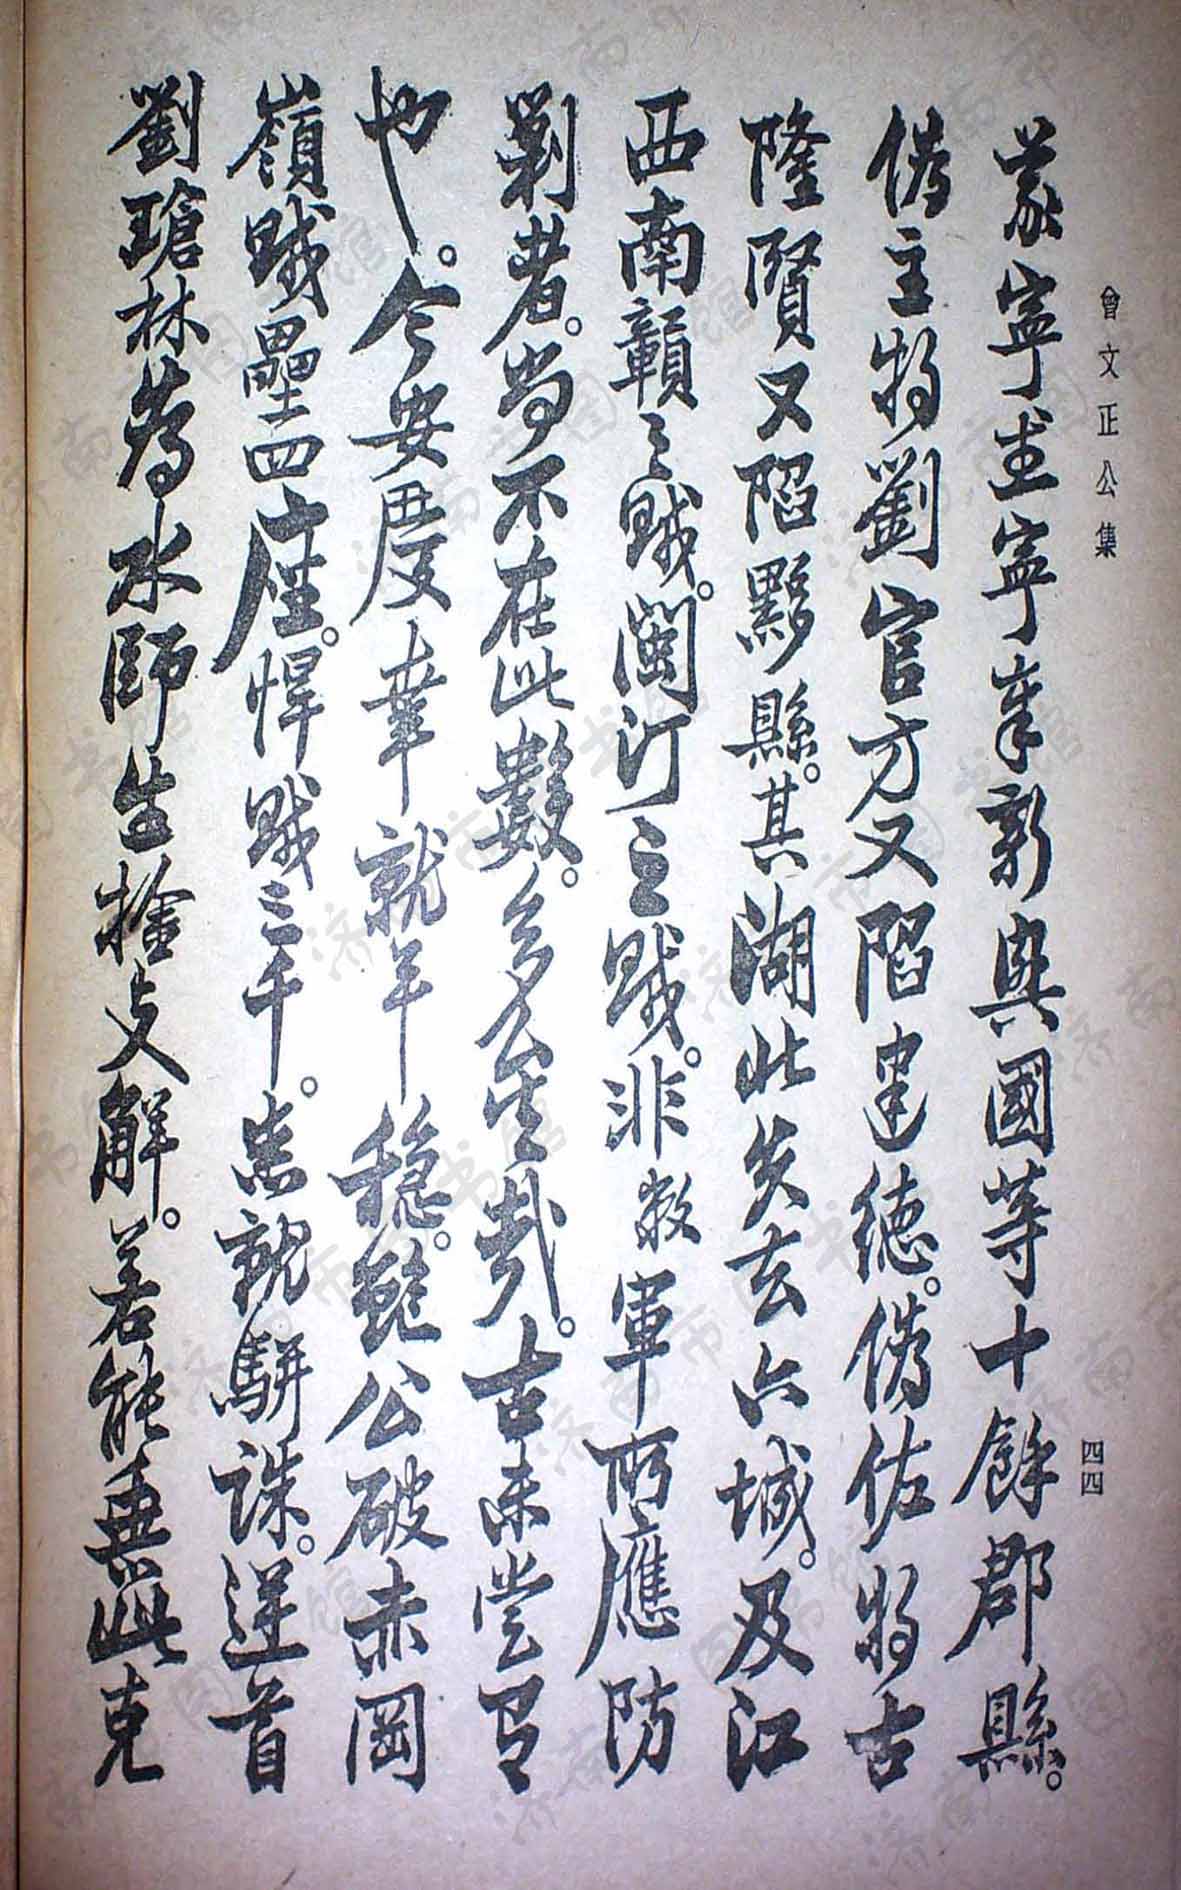 曾文正公集
四四
義寧武寧奉新興國等十餘郡縣。
偽主將劉官方又陷建德。偽佐將古
隆賢又陷黟縣。其湖北失去六城。及江
西南贛之賊。閩汀之賊。非敝軍所應防
剿者。尚不在此數。多矣哉。古未嘗有
也。今安慶幸就平穩。鮑公破赤岡
嶺賊壘四座。悍賊三千。悉就駢誅。逆首
劉瑲林為水師生擒支解。若能乘此克